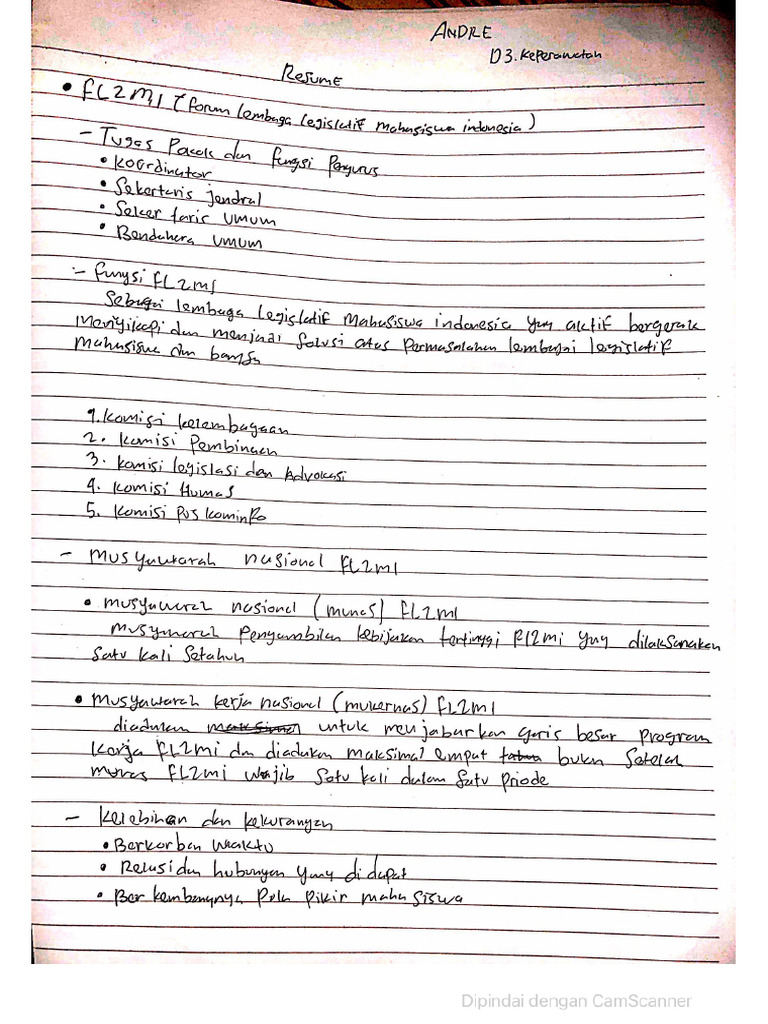 ANDRE
D3. Keperawatan
Resume
• FL2MI (Forum lembaga legislatif mahasiswa indonesia)
- Tugas Pocok dan fungsi Pengurus
• Koordinator
• Sekertaris jendral
• Seker taris umum
• Bendahara umum
- fungsi FL2MI
Sebagai lembaga legislatif mahasiswa indonesia yang aktif bergerak
menyikapi dan menjadi solusi atas permasalahan lembagai legislatif
mahasiswa dan bangsa
1. Komisi kelembagaan
2. Komisi Pembinaan
3. Komisi legislasi dan Advokasi
4. Komisi Humas
5. Komisi Puskominfo
- Musyawarah nasional FL2MI
• musyawarah nasional (munas) FL2MI
musyawarah Pengambilan kebijakan tertinggi Fl2mi yang dilaksanakan
satu kali setahun
• musyawarah kerja nasional (mukernas) FL2MI
diadakan untuk menjabarkan garis besar program
kerja FL2MI dan diadakan maksimal empat tahun bulan setelah
munas FL2MI wajib satu kali dalam satu priode
- Kelebihan dan kekurangan
• Berkorban waktu
• Relasi dan hubungan yang di dapat
• Ber kembangnya Pola Pikir maha siswa
Dipindai dengan CamScanner